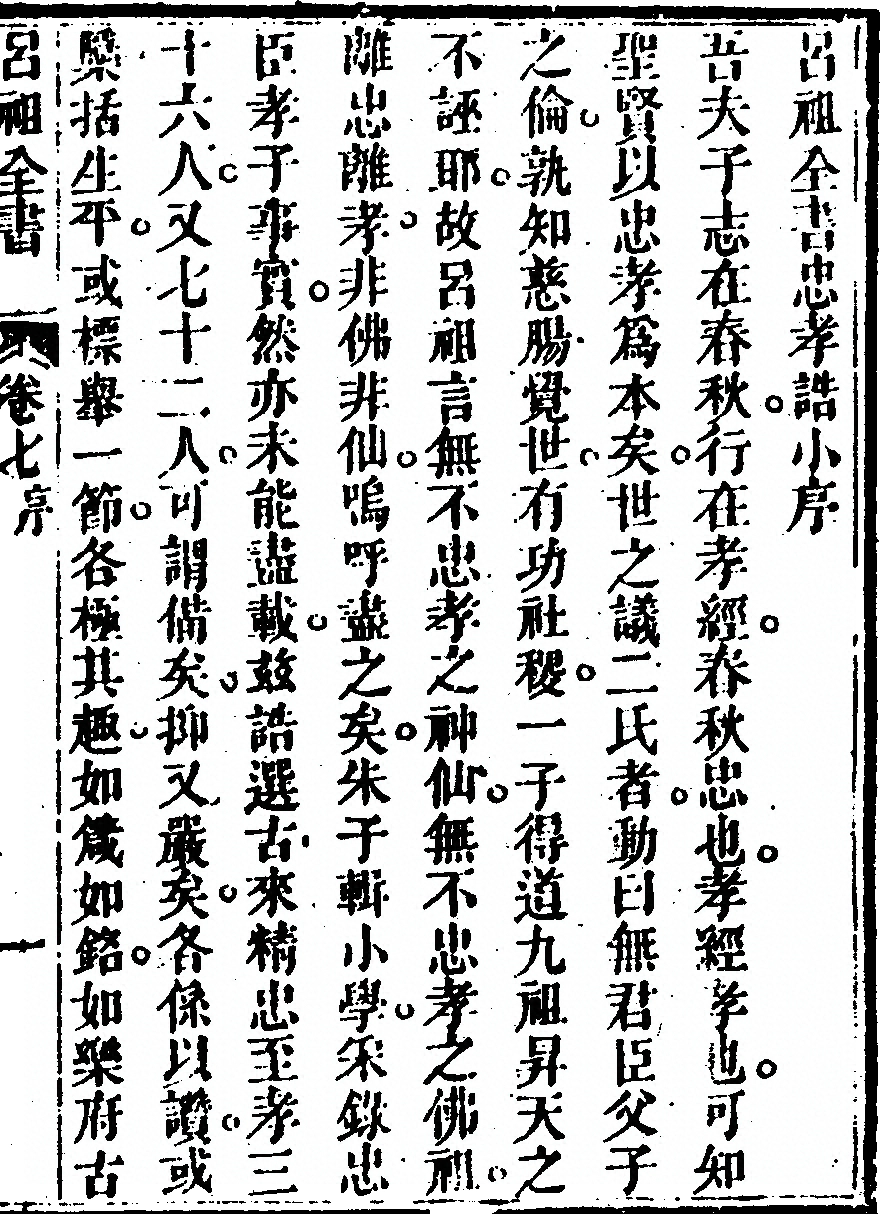 呂祖全書忠孝誥小序
吾夫子志在春秋。行在孝經。春秋忠也。孝經孝也。可知
聖賢以忠孝爲本矣。世之議二氏者。動曰無君臣父子
之倫。孰知慈腸覺世。有功社稷。一子得道九祖昇天之
不誣耶。故呂祖言無不忠孝之神仙。無不忠孝之佛祖。
離忠離孝。非佛非仙。嗚呼盡之矣。朱子輯小學。采錄忠
臣孝子事實。然亦未能盡載。茲誥選古來精忠至孝三
十六人。又七十二人。可謂備矣。抑又嚴矣。各係以讚。或
檃括生平。或標舉一節。各極其趣。如箴如銘。如樂府古
呂祖全書 卷七 序 一